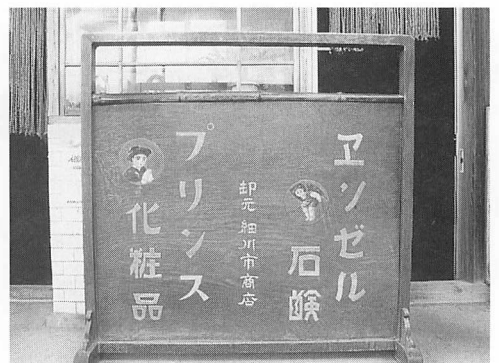 ヱンゼル
石鹸
卸元 細川市商店
プリンス
化粧品